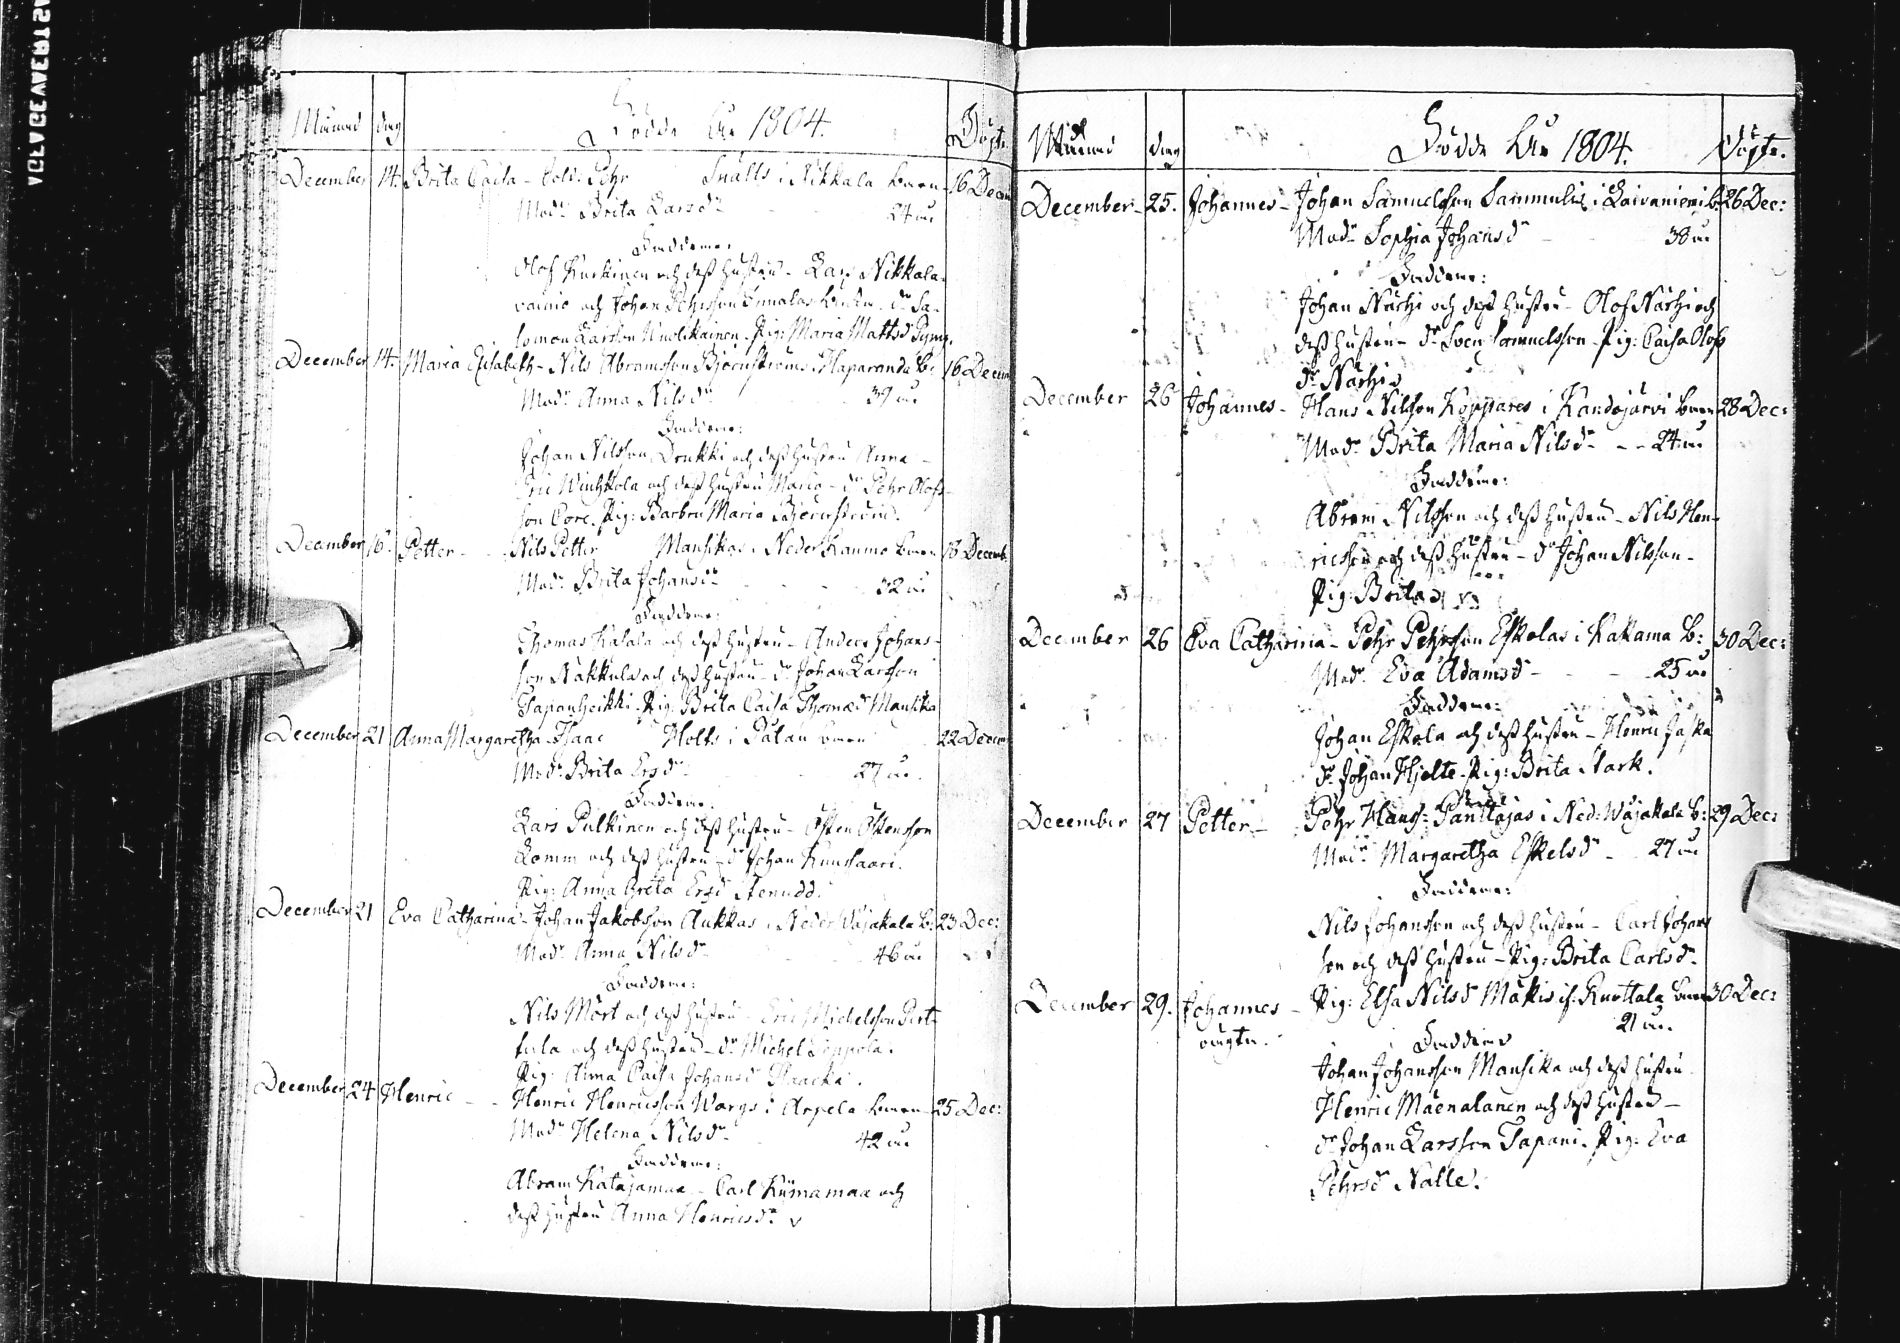 Månad dag Födde År 1804. Döpte.
December 14. Brita Caisa - Sold. Pehr Snälls i Nikkala barn 16 Decem
Mod:r Brita Larsd:r 24 år
Faddrarne:
Olof Kurkinen och dess hustru - Lars Nikkala-
vaino och Johan Pehrsson hustru - d:r Sa-
lomon Larsson Nuolikainen. Pig: Maria Mattsd
December 14. Maria Elisabeth - Nils Abramsson Björnströms i Haparanda b: 16 Decem
Mod:r Anna Nilsd:r 39 år
Faddrarne:
Johan Nilsson Drukki och dess hustru Anna -
Eric Winkkola och dess hustru Maria - d:r Pehr Olofs-
son Core. Pig: Barbru Maria Björnström.
December 16. Petter - Nils Petter Mansikas i Neder Kaumo barn 16 Decemb.
Mod:r Brita Johansd:r 32 år
Faddrarne:
Thomas Kalala och dess hustru - Anders Johans-
son Nakkula och dess hustru - d:r Johan Larsson
Tapanheikki. Pig: Brita Caisa Thomæd Mansika
December 21 Anna Margaretha - Isaac Holts i Palan barn 22 Decem
Mod:r Brita Ersd:r 27 år.
Faddrarne:
Lars Pulkinen och dess hustru - Östen Östensson
Lomm och dess hustru - d:r Johan Kuusaari.
Pig: Anna Greta Ersd Stenudd.
December 21 Eva Catharina - Johan Jakobsson Aukkas i Neder Wojakala b: 23 Dec:
Mod:r Anna Nilsd:r 46 år
Faddrarne:
Nils Mört och dess hustru - Eric Michelsson Pert-
tula och dess hustru - d:r Michel Loppola.
Pig: Anna Caisa Johansd Haacka.
December 24 Henric - - Henric Henricsson Wargs i Arpela barn - 25 Dec:
Mod:r Helena Nilsd:r 42 år
Faddrarne:
Abram Katajamaa - Carl Kiimamaa och
dess hustru Anna Henricsd:r
Månad dag Födde År 1804. Döpte.
December 25. Johannes - Johan Samuelsson Sammulis i Laivaniemi b: 26 Dec:
Mod:r Sophia Johansd:r 38 år
Faddrarne:
Johan Närhi och dess hustru - Olof Närhi och
dess hustru - d:r Sven Samuelsson - Pig: Caisa Olofs
d:r Närhi
December 26 Johannes - Hans Nilsson Koppares i Kandojärvi barn 28 Dec:
Mod:r Brita Maria Nilsd:r - - 24 år
Faddrarne:
Abram Nilsson och dess hustru - Nils Hen-
ricsson och dess hustru - d:r Johan Nilsson -
Pig: Brita
December 26 Eva Catharina - Pehr Pehrsson Eskelas i Kakama b: 30 Dec:
Mod:r Eva Adamsd:r - 25 år
Faddrarne:
Johan Eskela och dess hustru - Henric Jaska
d:r Johan Hjelte - Pig: Brita Stark.
December 27 Petter - Pehr Hanss: i Ned: Wojakala b: 29 Dec:
Mod:r Margaretha Eskelsd:r - 27 år
Faddrarne:
Nils Johansson och dess hustru - Carl Johans
son och dess hustru - Pig: Brita Carlsd:r
December 29. Johannes - Pig: Elsa Nilsd Mäkis if: Ruottala barn 30 Dec:
oägta. 21 år.
Faddrar
Johan Johansson Mansika och dess hustru
Henric Mäenalanen och dess hustru -
d:r Johan Larsson Tapani. Pig: Eva
Pehrsd Nalle.